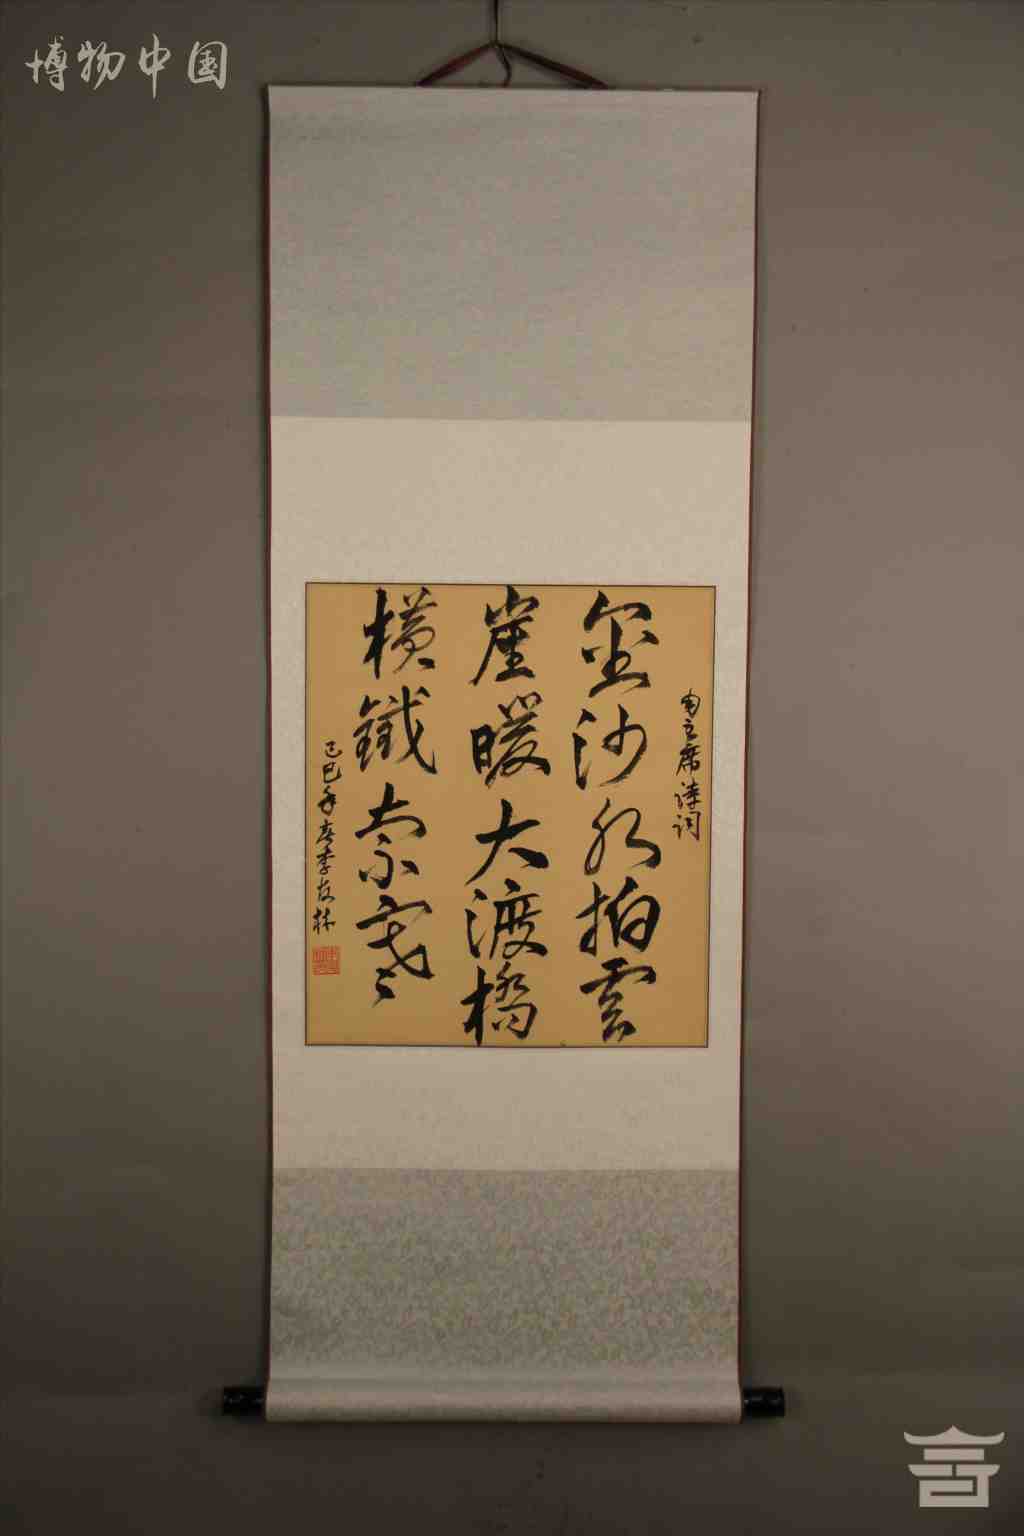 博物中国
主席诗词
金沙水拍雲
崖暖大渡橋
横鐵索寒
己巳年李友林